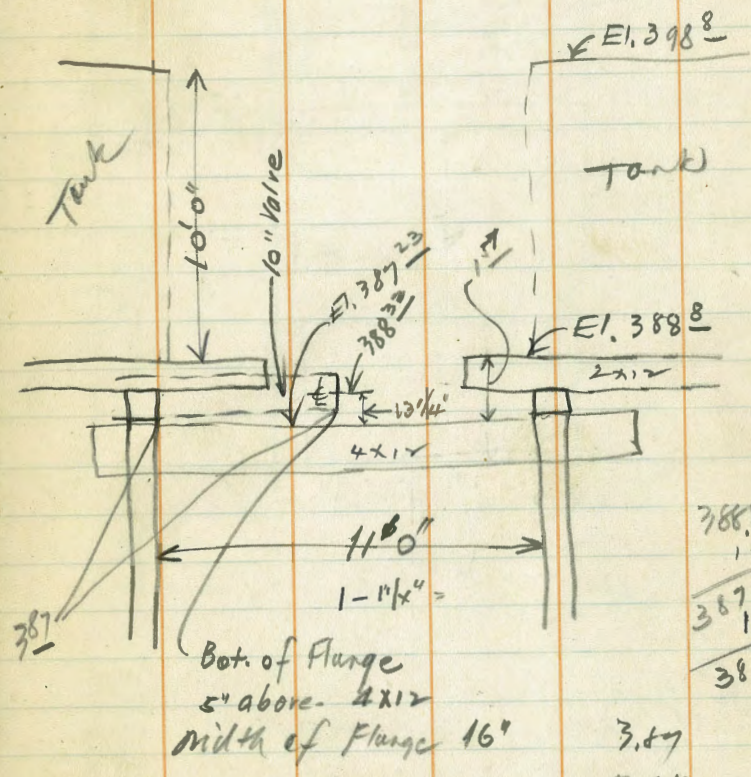 El. 398 8
Tank
Tank
10'0"
10" Valve
El. 387 23
388 33
El. 388 8
2x12
℄
13 1/4"
4x12
11'0"
387
Bot. of Flange
5" above 4x12
width of Flange 16"
388.
1
387
1
38